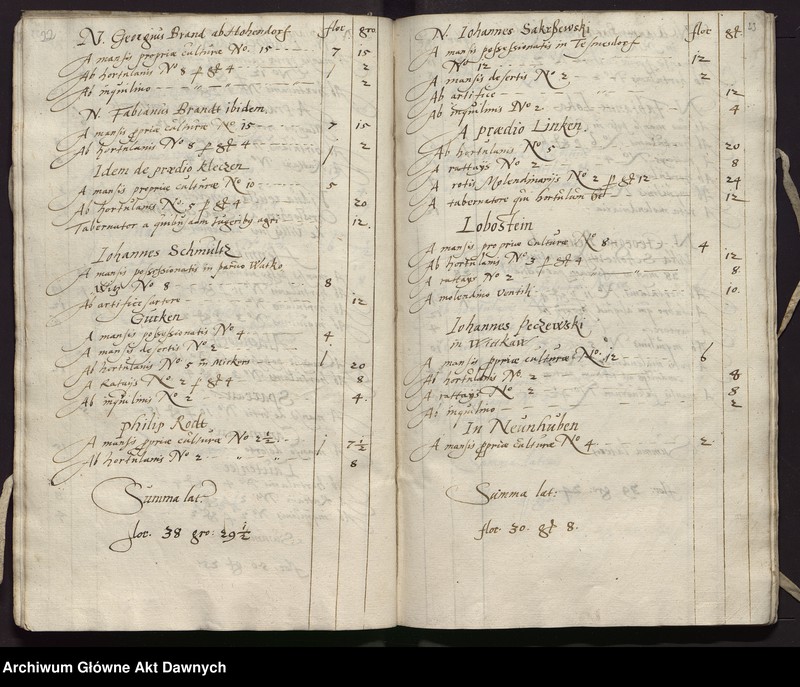 22
floc gro
N. Georgius Brand ab Hohendorf
A mansis propriæ culturæ No. 15 7 15
Ab hortulanis No 8 p gr 4 1 2
Ab inquilino 2
N. Fabianus Brandt ibidem
A mansis ppriæ culturæ No 15 7 15
Ab hortulanis No 8 p gr 4 1 2
Idem de prædio Kleczen
A mansis propriæ culturæ No 10 5
Ab hortulanis No. 5 p gr 4 20
Tabernator a quibusdam iugeribus agri 12.
Iohannes Schmultz
A mansis possessionatis in paruo Watko
witz No 8 8
Ab artifice sartore 12
Gurken
A mansis possessionatis No 4 4
A mansis desertis No 2 1
Ab hortulanis No 5 in Mirkers 20
A Rataijs No 2 p gr 4 8
Ab inquilinis No 2 4.
Philip Rodt
A mansis ppriæ culturæ No 2½ 1 7½
Ab hortulanis No 2 8
Summa lat:
floc. 38 gro: 29½
23
floc gr.
N. Iohannes Sakrßewski
A mansis possessionatis in Tesmesdorf
No 12 12
A mansis desertis No 2 2
Ab artifice 12
Ab inquilinis No 2 4
A prædio Linken.
Ab hortulanis No 5 20
A rattaijs No 2 8
A rotis Molendinarijs No 2 p gr 12 24
A tabernatore qui hortulum het 12
Lobostein
A mansis proprivo Culturæ No 8 4
Ab hortulanis No 3 p gr 4 12
A rattaijs No 2 8
A molendino ventili 10.
Iohannes Peczewski
in Wittkaw
A mansis ppriæ culturæ No. 12 6
Ab hortulanis No. 2 8
A rattaijs No 2 8
Ab inquilino 2
In Neunhuben
A mansis ppriæ culturæ No 4 2
Summa lat:
floc. 30. gr 8.
Archiwum Główne Akt Dawnych